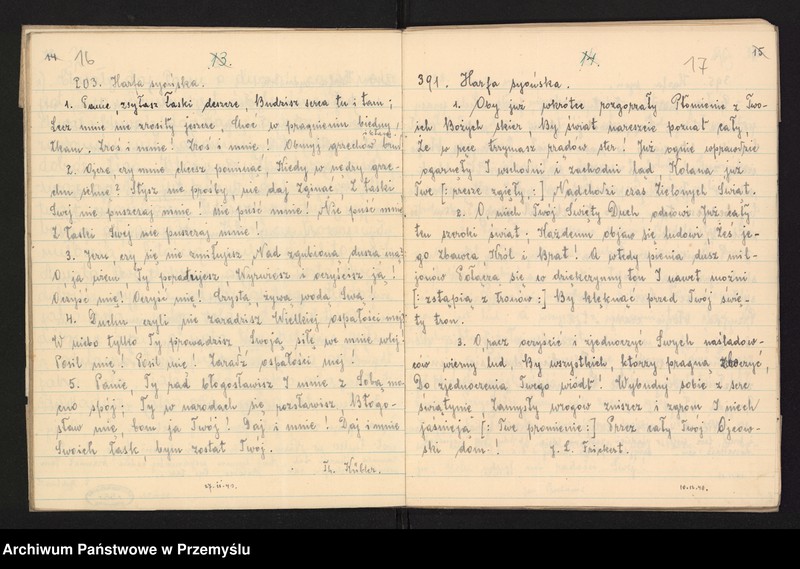 14 16 13.
203. Harfa syońska.
1. Panie, zsyłasz łaski deszcze, Budzisz serca tu i tam;
Lecz mnie nie zrosiły jeszcze, Choć w pragnieniu biedny
łkam. Zroś i mnie! Zroś i mnie! Obmyj grzechów
2. Ojcze, czy mnie chcesz pominąć, Kiedy w nędzy grze-
chu schnę? Słysz me prośby, nie daj zginąć, Z łaski
Swej nie puszczaj mnie! Nie puść mnie! Nie puść mnie
Z łaski Swej nie puszczaj mnie!
3. Jezu, czy się nie zmiłujesz Nad zgubioną duszą mą?
O, ja wiem, Ty poratujesz, Wyrwiesz i oczyścisz ją!
Oczyść mnie! Oczyść mnie! Czystą, żywą wodą Swą!
4. Duchu, czyli nie zaradzisz Wielkiej ospałości mej?
W niebo tylko Ty prowadzisz Swoją siłę we mnie wlej.
Posil mnie! Posil mnie! Zaradź ospałości mej!
5. Panie, Ty rad błogosławisz I mnie z Sobą mo-
cno spój; Ty w narodach się rozsławisz, Błogo-
sław mię, bom ja Twój! Daj i mnie! Daj i mnie
Swoich łask, bym został Twój.
Th. Kübler.
14. 17 15
391. Harfa syońska.
1. Oby już wkrótce rozgorzały Płomienie z Two-
ich Bożych skier, By świat nareszcie poznał cały,
Że w ręce trzymasz rządów ster! Już ognie wprawdzie
ogarnęły I wschodni i zachodni ląd, Kolana już
Twe [: rzesze zgięły, :] Nadchodzi czas Zielonych Świąt.
2. O, niech Twój Święty Duch odnowi Już cały
ten szeroki świat; Każdemu objaw się ludowi, Żeś je-
go Zbawca, Król i Brat! A wtedy pienia dusz mil-
jonów Połącza się w dziękczynny ton I nawet możni
[: zstąpią z tronów :] By klęknąć przed Twój świę-
ty tron.
3. O, racz oczyścić i zjednoczyć Swych naśladow-
ców wierny lud, By wszystkich, którzy pragną zboczyć,
Do zjednoczenia Twego wiódł! Wybuduj sobie z serc
świątynię, Zamysły wrogów zniszcz i zgrom I niech
jaśnieją [: Twe promienie :] Przez cały Twój Ojcow-
ski dom!
J. L. Frickert.
Archiwum Państwowe w Przemyślu